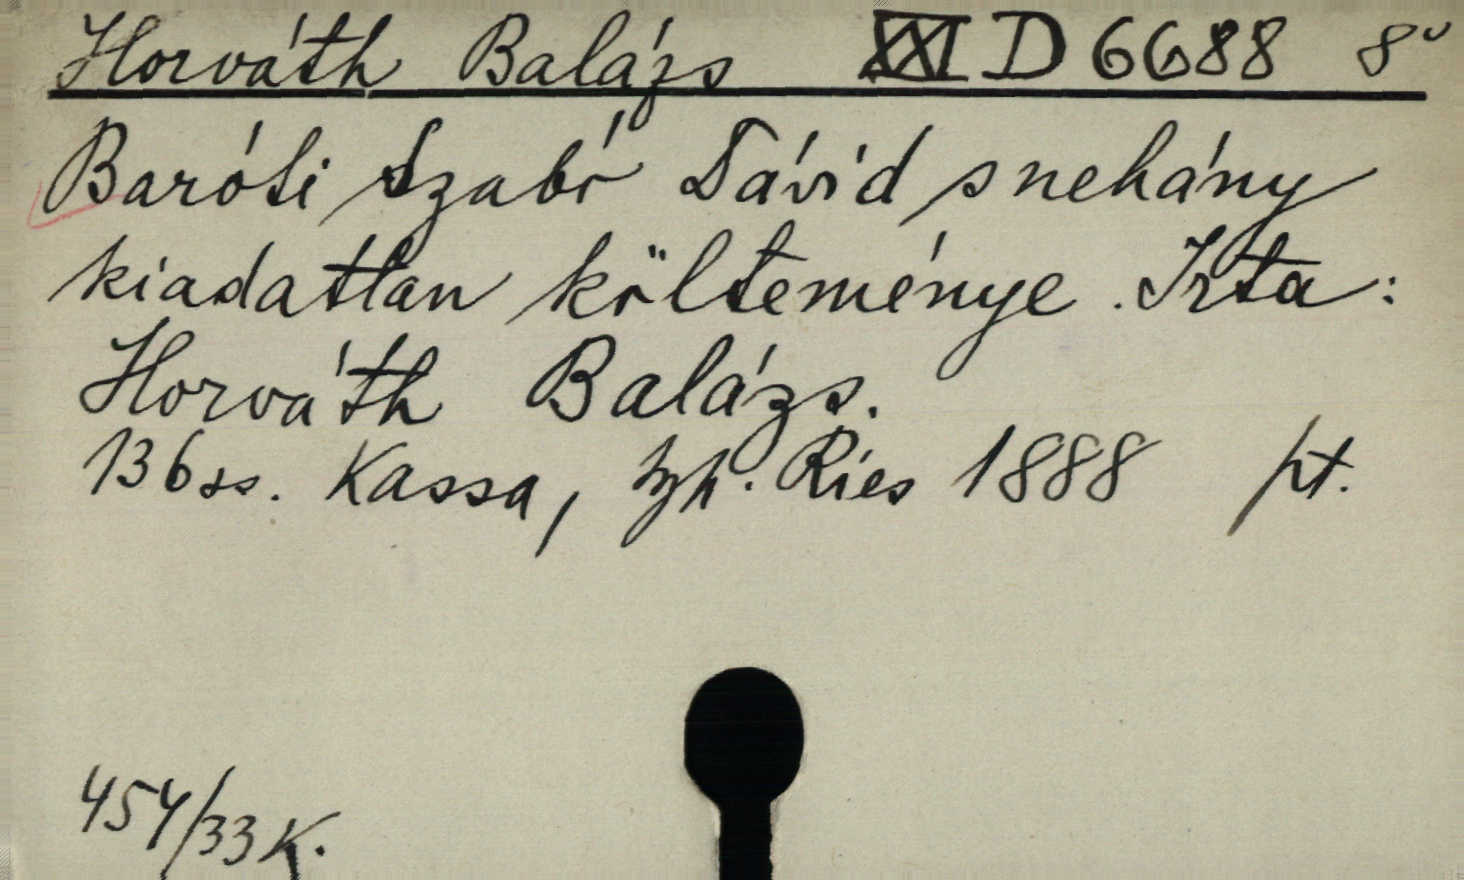 Horváth Balázs XXI D 6688 8°
Baróti Szabó Dávid s nehány
kiadatlan költeménye. Irta:
Horváth Balázs.
136 ss. Kassa, tyh. Ries 1888 pt.
454/33 K.